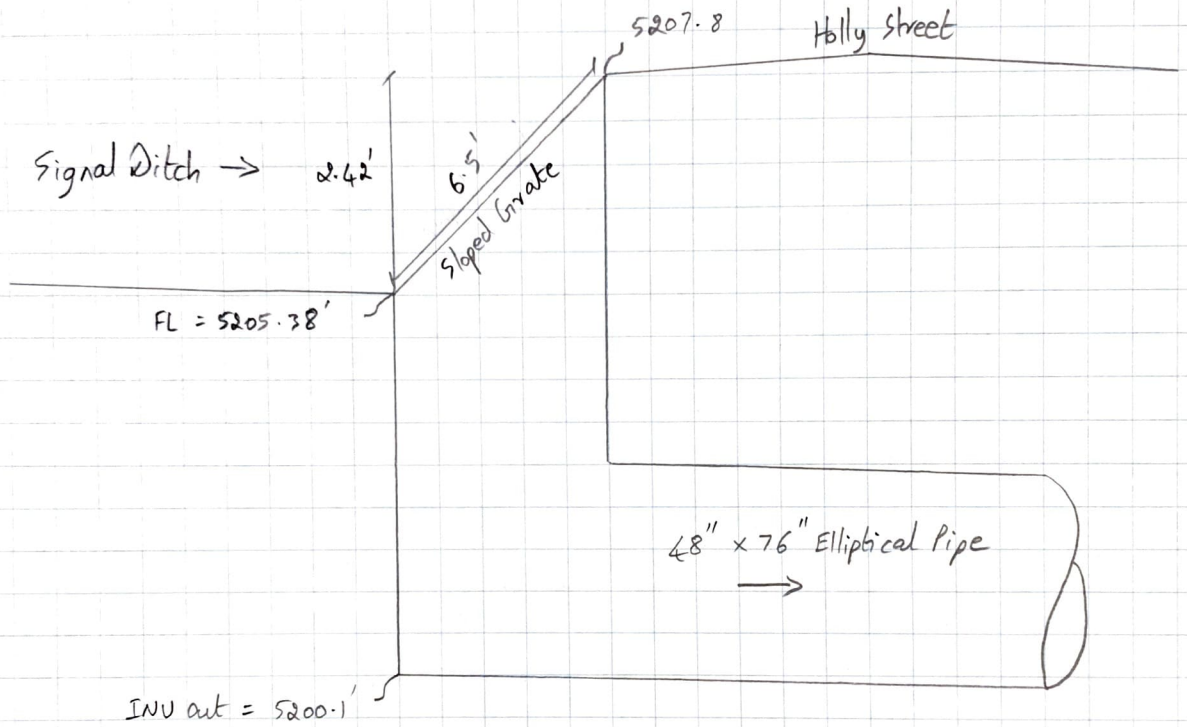 5207.8
Holly Street
Signal Ditch →
2.42'
6.5'
Sloped Grate
FL = 5205.38'
48" x 76" Elliptical Pipe
→
INV out = 5200.1'